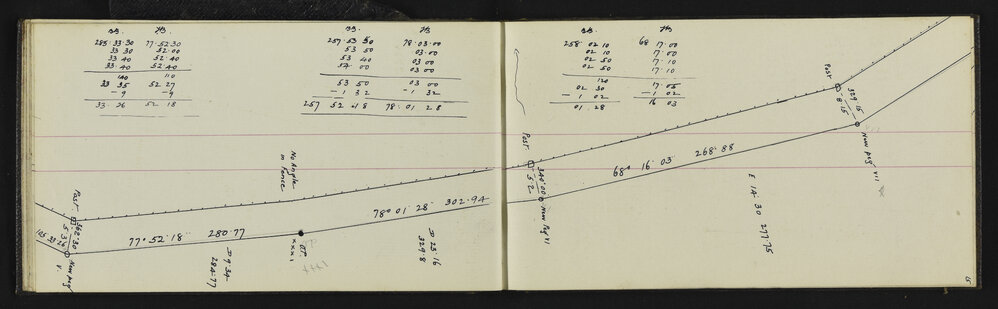 285·33·30 77·52·30
33 30 52·00
33 40 52·40
33·40 52·40
140 110
33 35 52 27
- 9 - 9
33·26 52 18
257·53 50 78·03·00
53 50 03·00
53 40 03 00
54 00 03 00
53 50 03 00
- 1 32 - 1 32
257 52 18 78·01 28
258 02 10 68 17·00
02 10 17·00
02 50 17·10
02 50 17·10
120
02 30 17·05
- 1 02 - 1 02
01·28 16 03
Post
362·30
5·3
105 33 26
New peg
V.
77°52·18" 280·77
D 9·34
284·77
No Angle
in Fence
OT
XXXI
78° 01' 28" 302·94
D 23·16
329·8
Post
344·00
5·2
New Peg VI
68° 16' 03" 268·88
E 14·30 277·75
Post
329·15
8·15
New peg VII